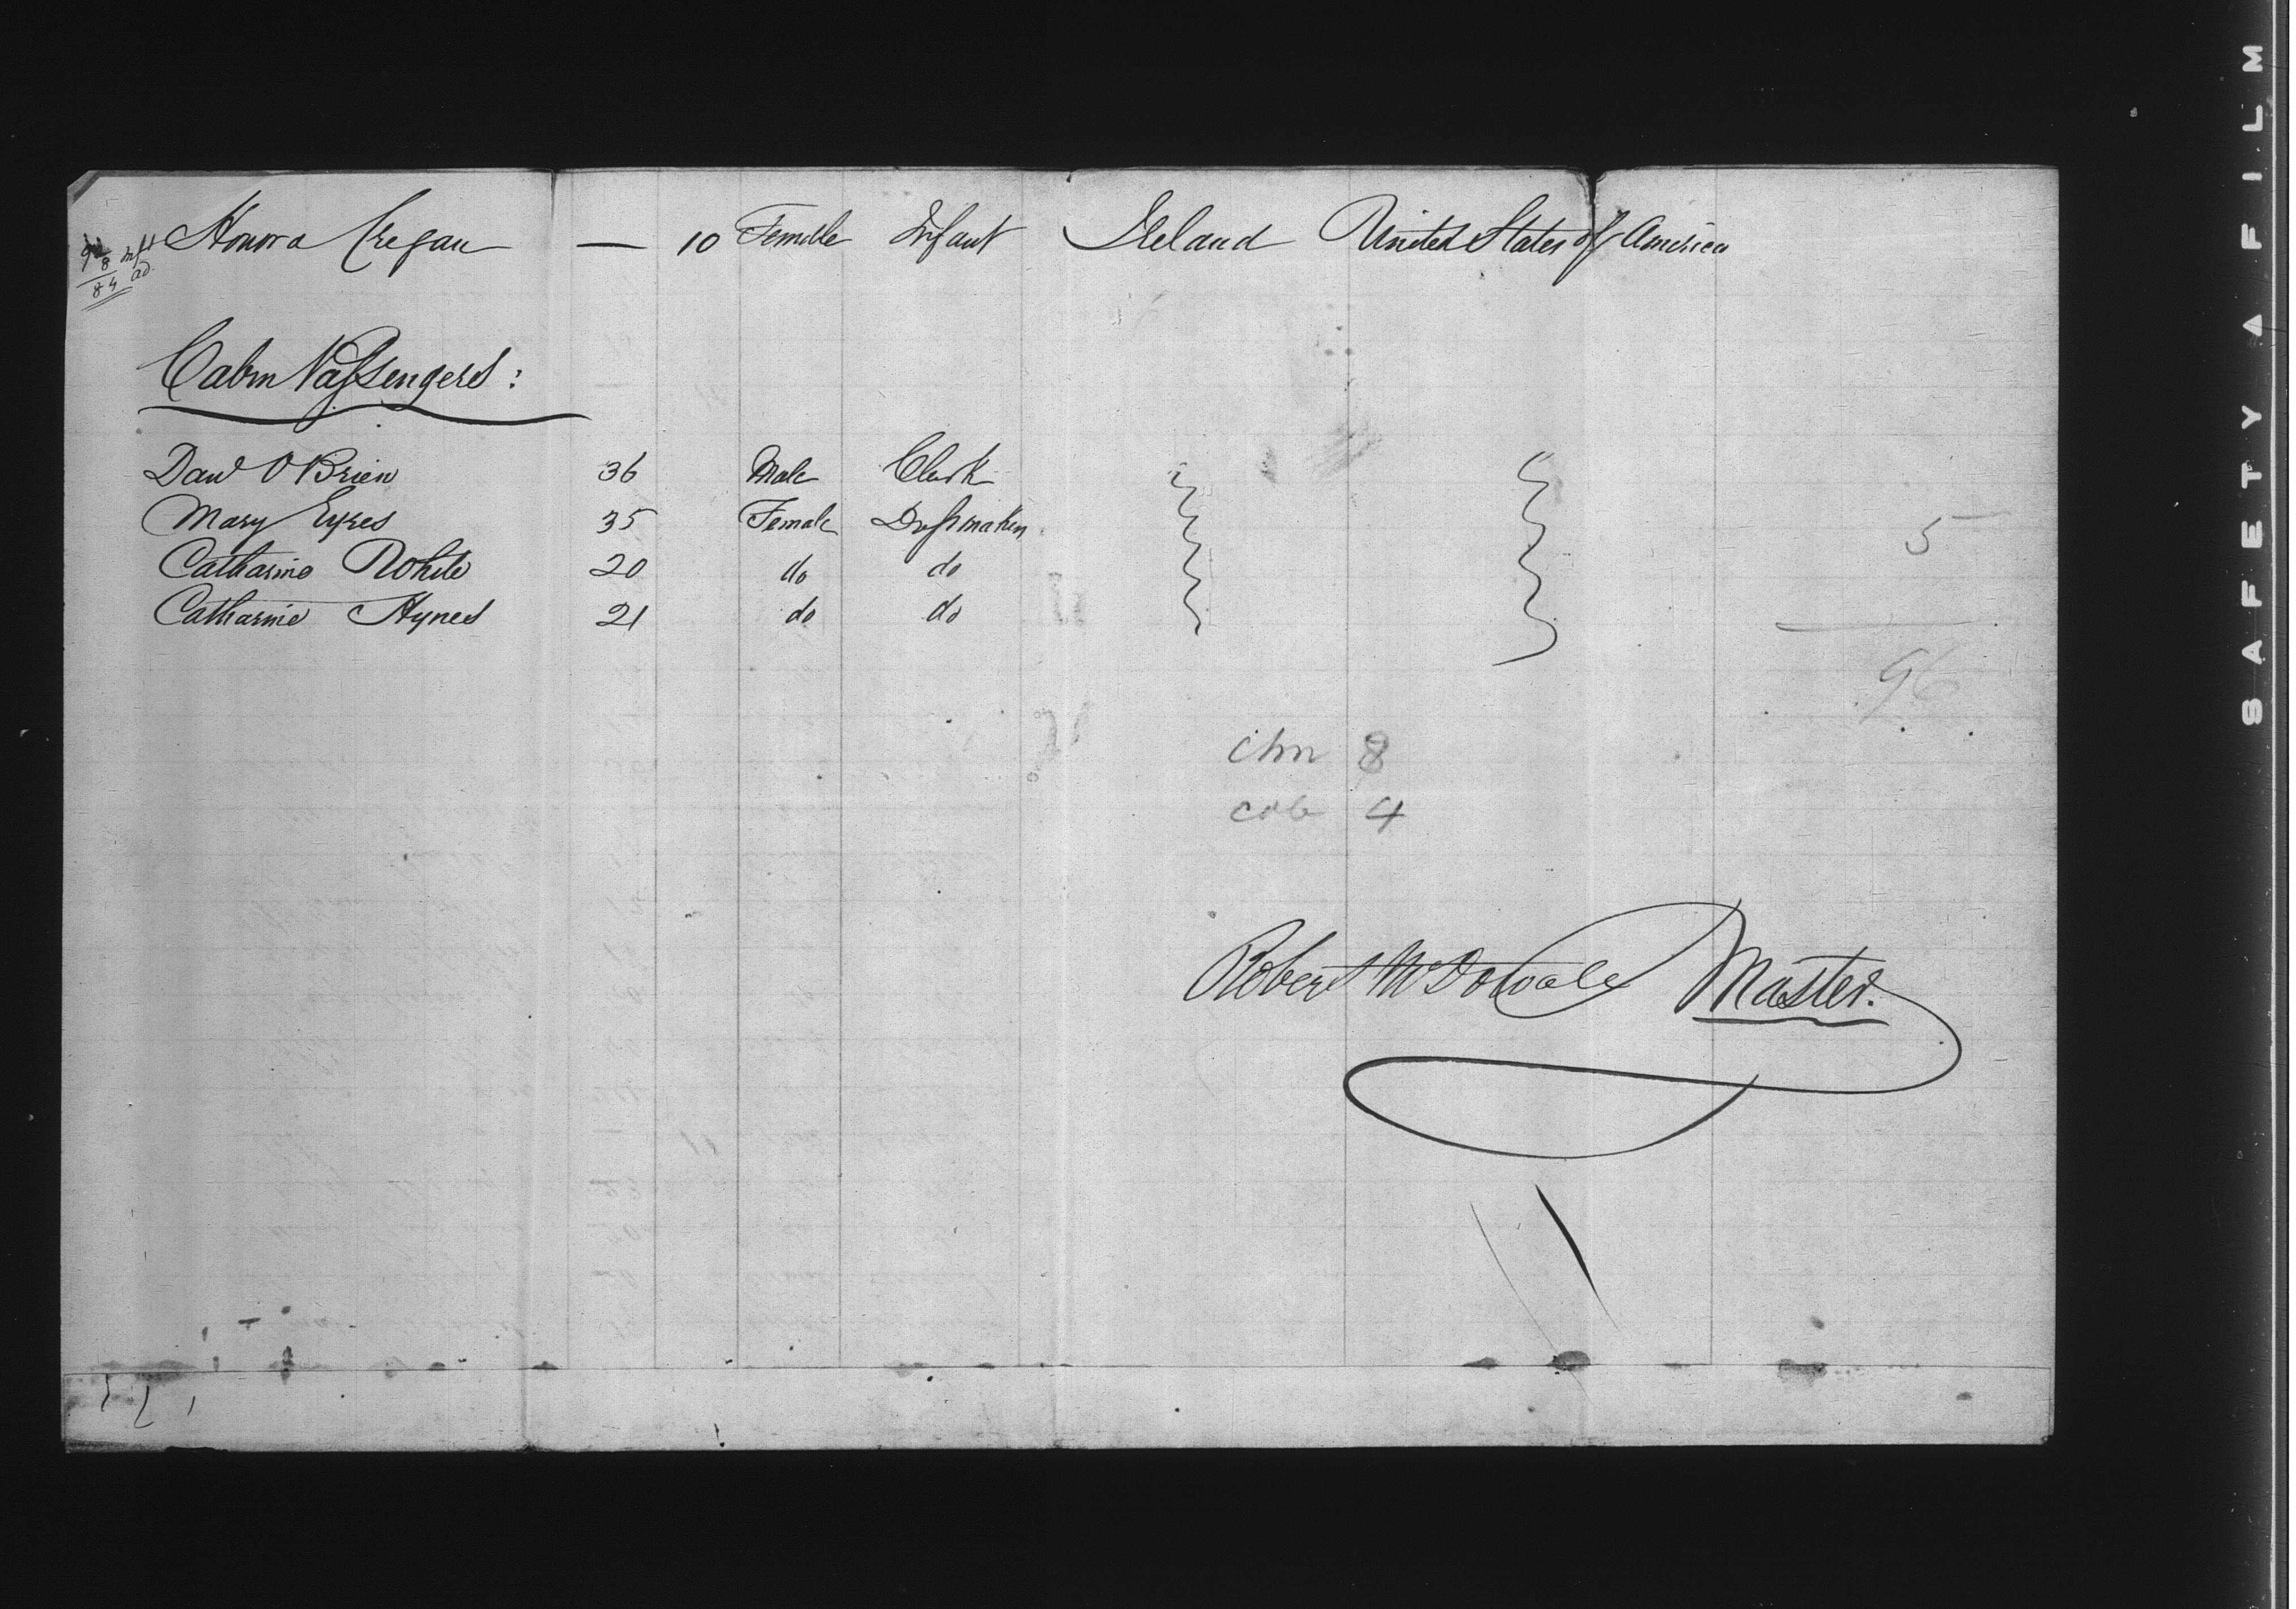 Honora Cregan — 10 Female Infant Ireland United States of America
8 inft
84 ad
Cabin Passengers:
Dan'l O'Brien 36 Male Clerk
Mary Eyres 35 Female Dressmaker 5
Catharine White 20 do do
Catharine Hynes 21 do do
96
chn 8
cab 4
Robert Master.
SAFETY FILM